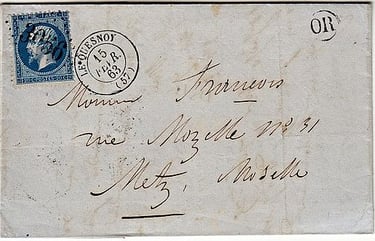 LE QUESNOY
15
FEVR.
63
(57)
OR
Monsieur François
rue Mozelle No 31
Metz, Moselle